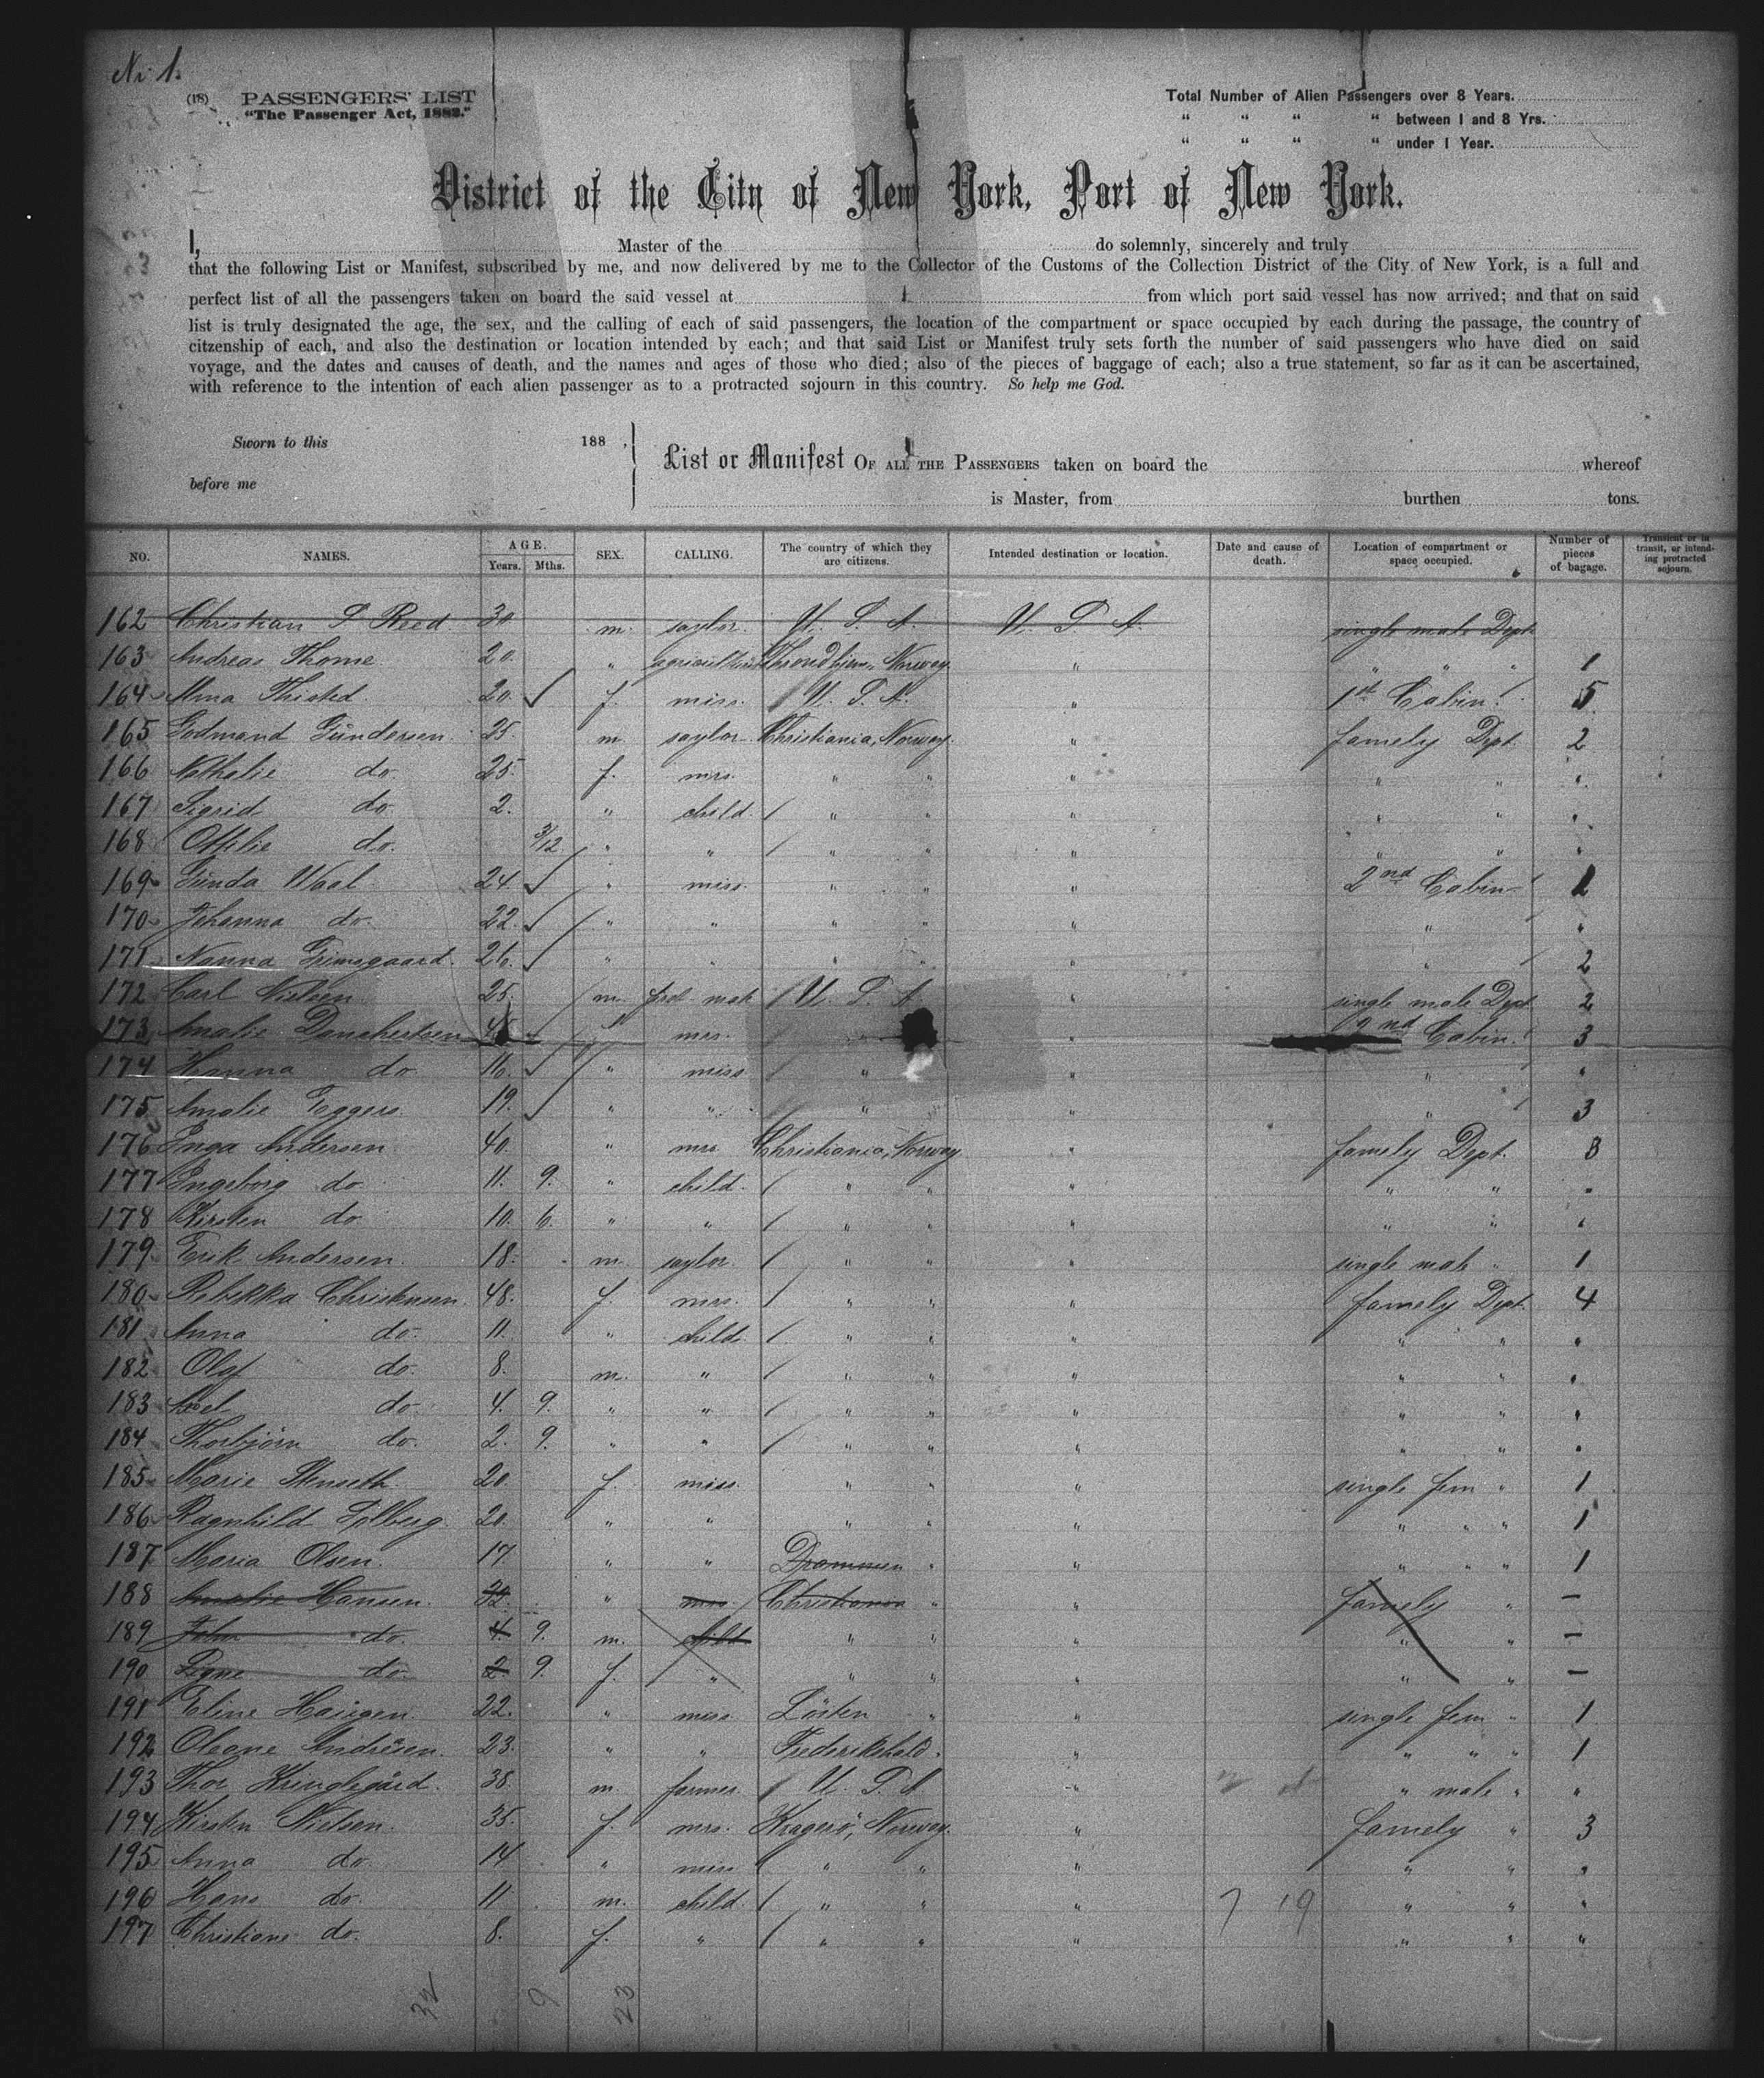 No 1.
(18) PASSENGERS' LIST
"The Passenger Act, 1882."
Total Number of Alien Passengers over 8 Years.
" " " " between 1 and 8 Yrs.
" " " " under 1 Year.
District of the City of New York, Port of New York.
I, Master of the do solemnly, sincerely and truly
that the following List or Manifest, subscribed by me, and now delivered by me to the Collector of the Customs of the Collection District of the City of New York, is a full and
perfect list of all the passengers taken on board the said vessel at from which port said vessel has now arrived; and that on said
list is truly designated the age, the sex, and the calling of each of said passengers, the location of the compartment or space occupied by each during the passage, the country of
citzenship of each, and also the destination or location intended by each; and that said List or Manifest truly sets forth the number of said passengers who have died on said
voyage, and the dates and causes of death, and the names and ages of those who died; also of the pieces of baggage of each; also a true statement, so far as it can be ascertained,
with reference to the intention of each alien passenger as to a protracted sojourn in this country. So help me God.
Sworn to this 188 ,
before me
List or Manifest OF ALL THE PASSENGERS taken on board the whereof
is Master, from burthen tons.
NO. NAMES. AGE. Years. Mths. SEX. CALLING. The country of which they are citizens. Intended destination or location. Date and cause of death. Location of compartment or space occupied. Number of pieces of bagage. Transient or in transit, or intending protracted sojourn.
162 Christian S Reed 30 m. saylor. U. S. A. U. S. A. single male Dept
163 Andreas Thome 20. " Throndhjem, Norway " " " " 1
164 Alma Thisted 20. f. miss. U. S. A. " 1st Cabin. 5
165 Godmand Gündersen 25. m. saylor Christiania, Norway. " famely Dept. 2
166 Nathalie do. 25. f. mrs. " " " " " "
167 Sigrid do 2. " child. " " " " " "
168 Ottilie do. 3/12 " " " " " " " "
169 Günda Waal 24. " miss. " " " 2nd Cabin
170 Johanna do. 22. " " " " " " "
171 Nanna Grimsgaard. 26. " " " " " " 2
172 Carl Nielsen 25. m. U. S. A. " single male Dept 2
173 Amalie mrs. " " 2nd Cabin. 3
174 Hanna do. 16. " miss " " " "
175 Amalie Eggers 19. " " " " " 3
176 Inga Andersen 40. " mrs Christiania, Norway. " famely Dept. 8
177 Ingeborg do. 11. 9. " child. " " " " " "
178 Kirsten do. 10. 6. " " " " " " " "
179 Erik Andersen. 18. m. saylor. " " " single male " 1
180 Rebekka Christensen. 48. f. mrs. " " " famely Dept. 4
181 Anna do. 11. " child. " " " " " "
182 Olaf do. 8. m. " " " " " " "
183 Axel do. 4. 9. " " " " " " " "
184 Thorbjörn do. 2. 9. " " " " " " " "
185 Marie Stenseth. 20. f. miss. " " " single fem " 1
186 Ragnhild Solberg. 20. " " " " " " " " 1
187 Maria Olsen. 17. " " Drammen " " " " " 1
188 Amalie Hansen. 32. " mrs. Christiania " " famely " —
189 John do. 4. 9. m. child " " " " " —
190 Signe do. 2. 9. f. " " " " " " —
191 Eline Haugen. 22. " miss Löiten " " single fem " 1
192 Oleane Andresen. 23. " " Frederikshald. " " " " 1
193 Thor Kringlegård. 38. m. farmer. U. S. A. " " male " "
194 Kirsten Nielsen. 35. f. mrs. Kragerö, Norway. " famely " 3
195 Anna do. 14 " miss " " " " " "
196 Hans do. 11. m. child. " " " 7 19 " " "
197 Christiane do. 8. f. " " " " " " "
32 9 23